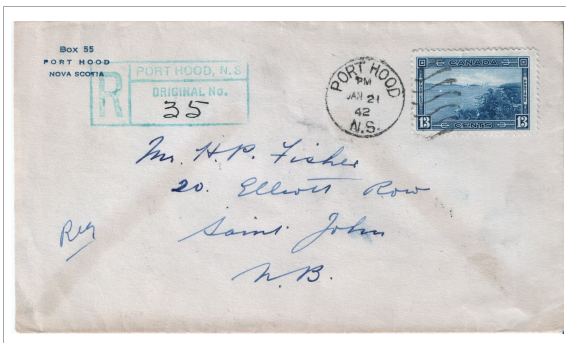 Box 55
PORT HOOD
NOVA SCOTIA
R
PORT HOOD, N.S
ORIGINAL No.
35
PORT HOOD
PM
JAN 21
42
N.S.
CANADA
13 CENTS 13
Mr. H. P. Fisher
20. Elliott Row
Saint. John
N.B.
Reg